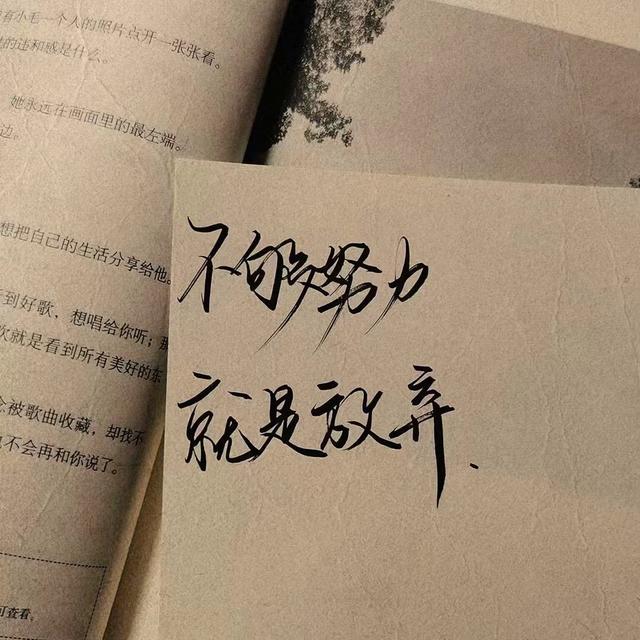 有小毛一个人的照片点开一张张看。
的违和感是什么。
她永远在画面里的最左端。
边。
想把自己的生活分享给他。
到好歌，想唱给你听；那
次就是看到所有美好的东
念被歌曲收藏，却找不
也不会再和你说了。
可查看。
不够努力
就是放弃.